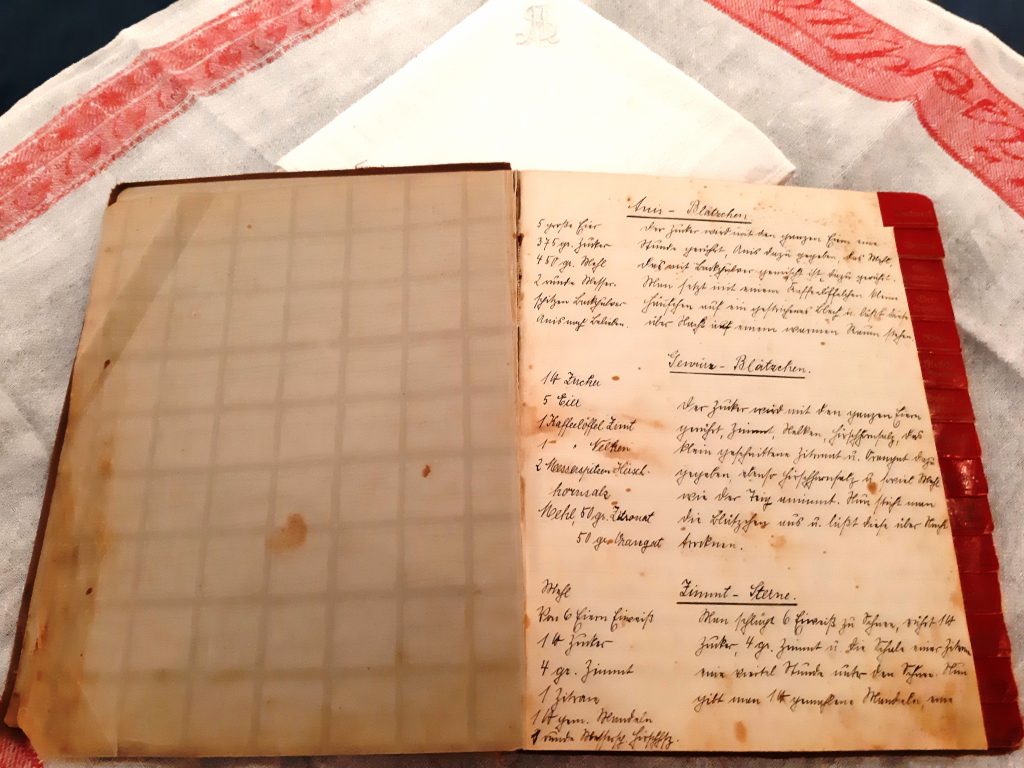 Anis - Blätzchen.
5 große Eier
375 gr. Zucker
450 gr. Mehl
2 runde Messer-
spitzen Backpulver
Anis nach Belieben.
Der Zucker wird mit den ganzen Eiern eine
Stunde gerührt, Anis dazu gegeben, das Mehl,
das mit Backpulver gemischt ist, dazu gerührt.
Man setzt mit einem Kaffeelöffelchen kleine
Häufchen auf ein gestrichenes Blech u. läßt diese
über Nacht in einem warmen Raum stehen.
Gewürz - Blätzchen.
1 ℔ Zucker
5 Eier
1 Kaffeelöffel Zimt
1 " Nelken
2 Messerspitzen Hirsch-
hornsalz
Mehl, 50 gr. Zitronat
50 gr. Orangat
Der Zucker wird mit den ganzen Eiern
gerührt, Zimmt, Nelken, Hirschhornsalz, das
klein geschnittene Zitronat u. Orangat dazu
gegeben, ebenso Hirschhornsalz u. soviel Mehl
wie der Teig annimmt. Nun sticht man
die Blätzchen aus u. läßt diese über Nacht
trocknen.
Zimmt - Sterne.
Mehl
Von 6 Eiern Eiweiß
1 ℔ Zucker
4 gr. Zimmt
1 Zitrone
1 ℔ gem. Mandeln
runde Messersp. Hirschhs.
Man schlägt 6 Eiweiß zu Schnee, rührt 1 ℔
Zucker, 4 gr. Zimmt u. die Schale einer Zitrone
eine viertel Stunde unter den Schnee. Nun
gibt man 1 ℔ gemahlene Mandeln, eine